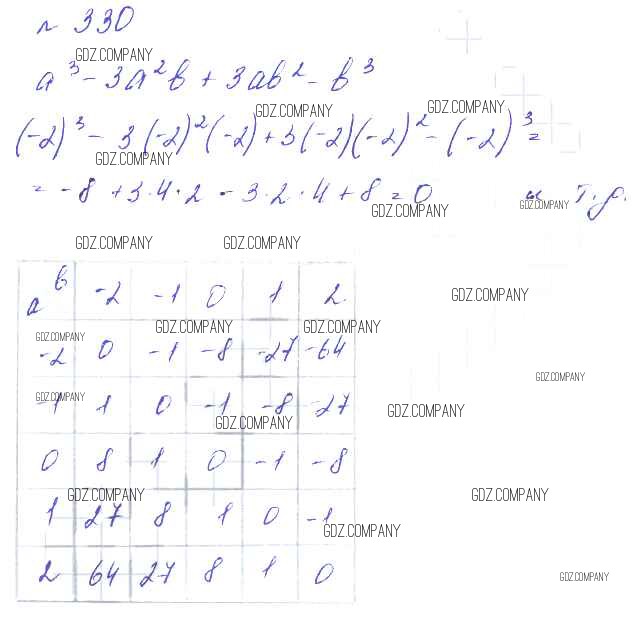 № 330
GDZ.COMPANY
a³ - 3a²b + 3ab² - b³
GDZ.COMPANY GDZ.COMPANY
(-2)³ - 3(-2)²(-2) + 3(-2)(-2)² - (-2)³ =
GDZ.COMPANY
= -8 + 3·4·2 - 3·2·4 + 8 = 0 и т.д.
GDZ.COMPANY GDZ.COMPANY
GDZ.COMPANY GDZ.COMPANY
a b -2 -1 0 1 2
GDZ.COMPANY
GDZ.COMPANY GDZ.COMPANY
GDZ.COMPANY
-2 0 -1 -8 -27 -64
GDZ.COMPANY
GDZ.COMPANY
-1 1 0 -1 -8 -27
GDZ.COMPANY
GDZ.COMPANY
0 8 1 0 -1 -8
GDZ.COMPANY GDZ.COMPANY
1 27 8 1 0 -1
GDZ.COMPANY
2 64 27 8 1 0
GDZ.COMPANY